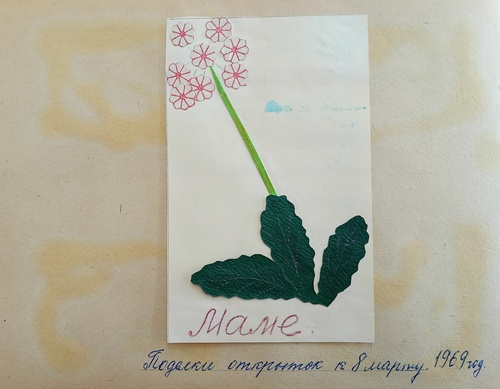 Маме.
Поделки открыток к 8 марту. 1969 год.